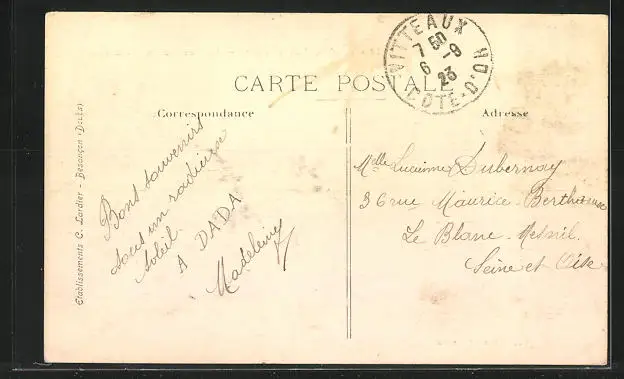 CARTE POSTALE
VITTEAUX
7 50
6 -9
23
CÔTE-D'OR
Correspondance
Adresse
Bons souvenirs
sous un radieux
soleil.
A DADA
Madeleine
Melle Lucienne Dubernay
36 rue Maurice-Bertheaux
Le Blanc-Mesnil.
Seine et Oise
Établissements C. Lardier - Besançon (Doubs)